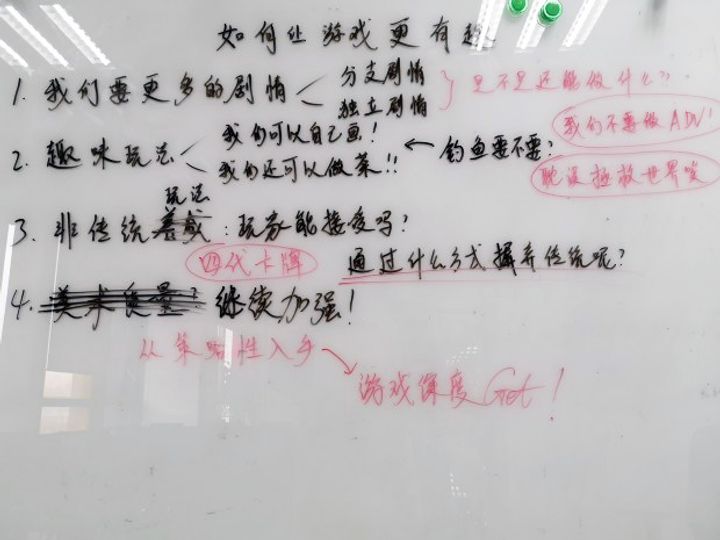 如何让游戏更有趣
1. 我们要更多的剧情
分支剧情
独立剧情
是不是还能做什么??
我们不要做ADV!
2. 趣味玩法
我们可以自己画!
我们还可以做菜!!
← 钓鱼要不要?
耽误拯救世界唉
玩法
3. 非传统养成: 玩家能接受吗?
四代卡牌
通过什么方式摒弃传统呢?
4. 美术质量? 继续加强!
从策略性入手
游戏深度Get!